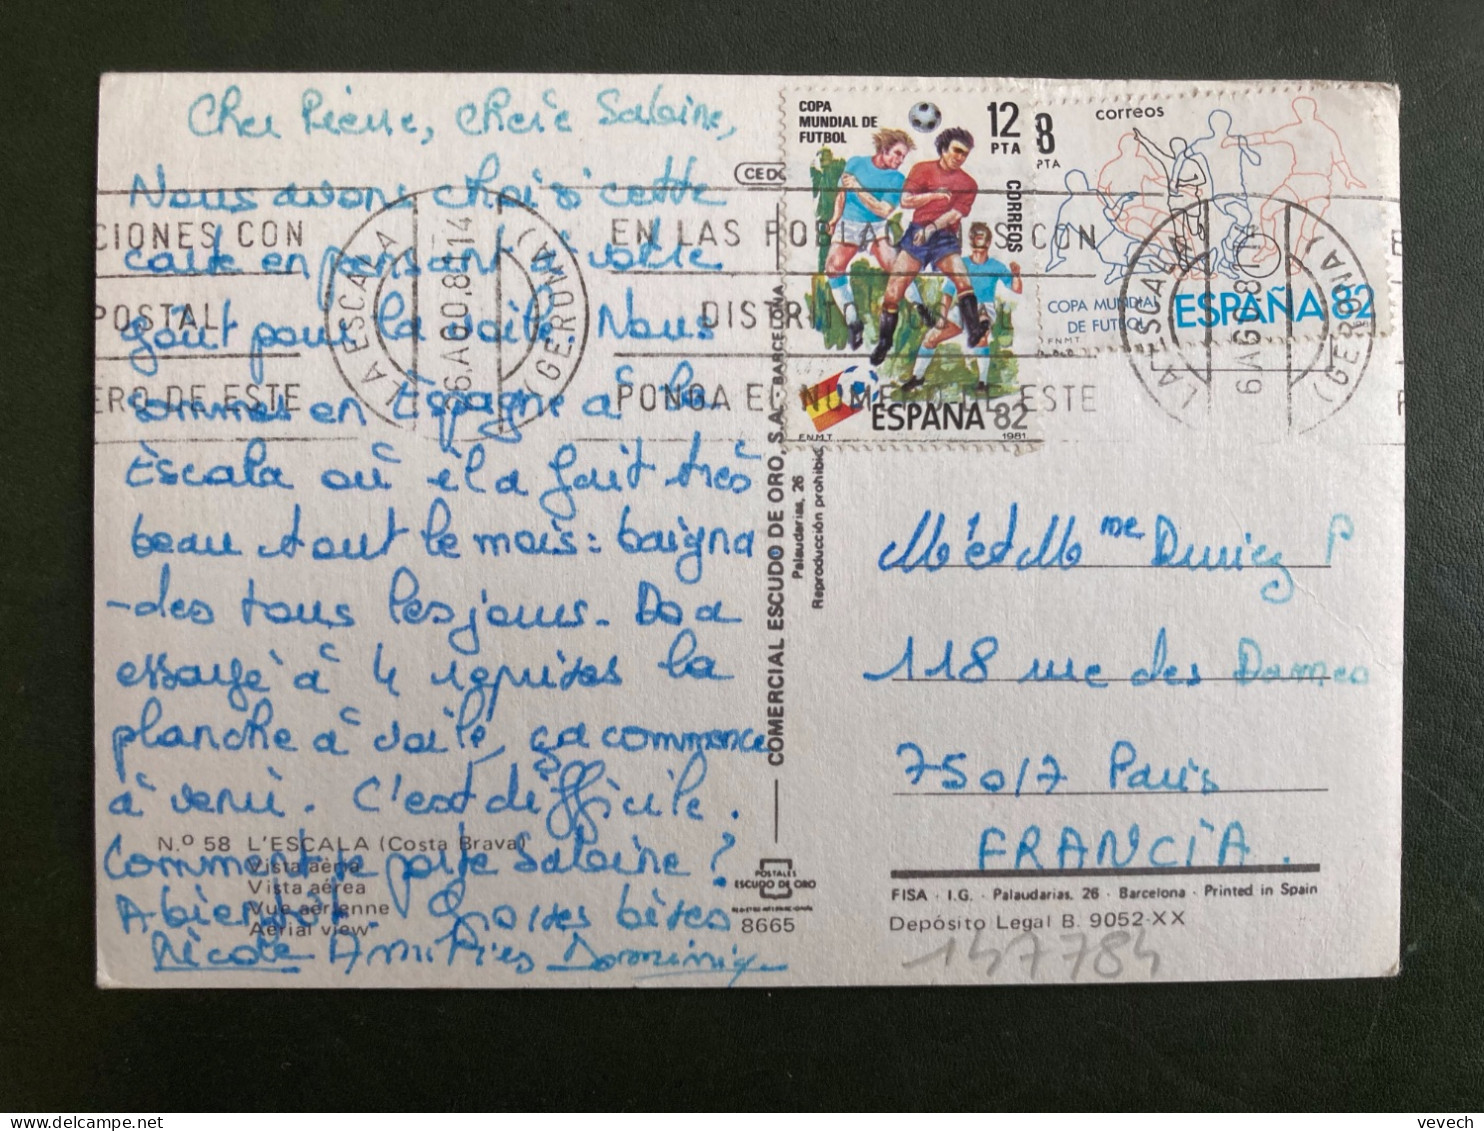 Cher Pierre, chère Sabine,
Nous avons choisi cette
carte en pensant à votre
goût pour la voile. Nous
sommes en Espagne à la
Escala où il a fait très
beau tout le mois : baigna
-des tous les jours. Do a
essayé à 4 reprises la
planche à voile, ça commence
à venir. C'est difficile.
Comment se porte Sabine ?
A bientôt. Grosses bises
Nicole Amitiés Dominique
N.º 58 L'ESCALA (Costa Brava)
Vista aèria
Vista aérea
Vue aérienne
Aerial view
COMERCIAL ESCUDO DE ORO, S.A. - BARCELONA
Palaudarias, 26
Reproducción prohibida
CEDO
POSTALES
ESCUDO DE ORO
8665
COPA
MUNDIAL DE
FUTBOL
12
PTA
CORREOS
ESPAÑA 82
F.N.M.T.
1981
8
PTA
correos
COPA MUNDIAL
DE FUTBOL
ESPAÑA 82
F.N.M.T.
CIONES CON
POSTAL
ERO DE ESTE
LA ESCALA
(GERONA)
EN LAS POBLACIONES CON
DISTRITO POSTAL
PONGA EL NUMERO DE ESTE
LA ESCALA
(GERONA)
M et Mme P
118 rue des Dames
75017 Paris
FRANCIA.
FISA - I.G. - Palaudarias, 26 - Barcelona - Printed in Spain
Depósito Legal B. 9052-XX
147784
vevech